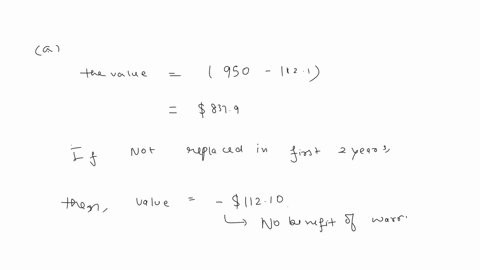 (a)
the value = (950 - 112.1)
= $ 837.9
If Not replaced in first 2 years,
then, value = - $112.10
↳ No benefit of warr.